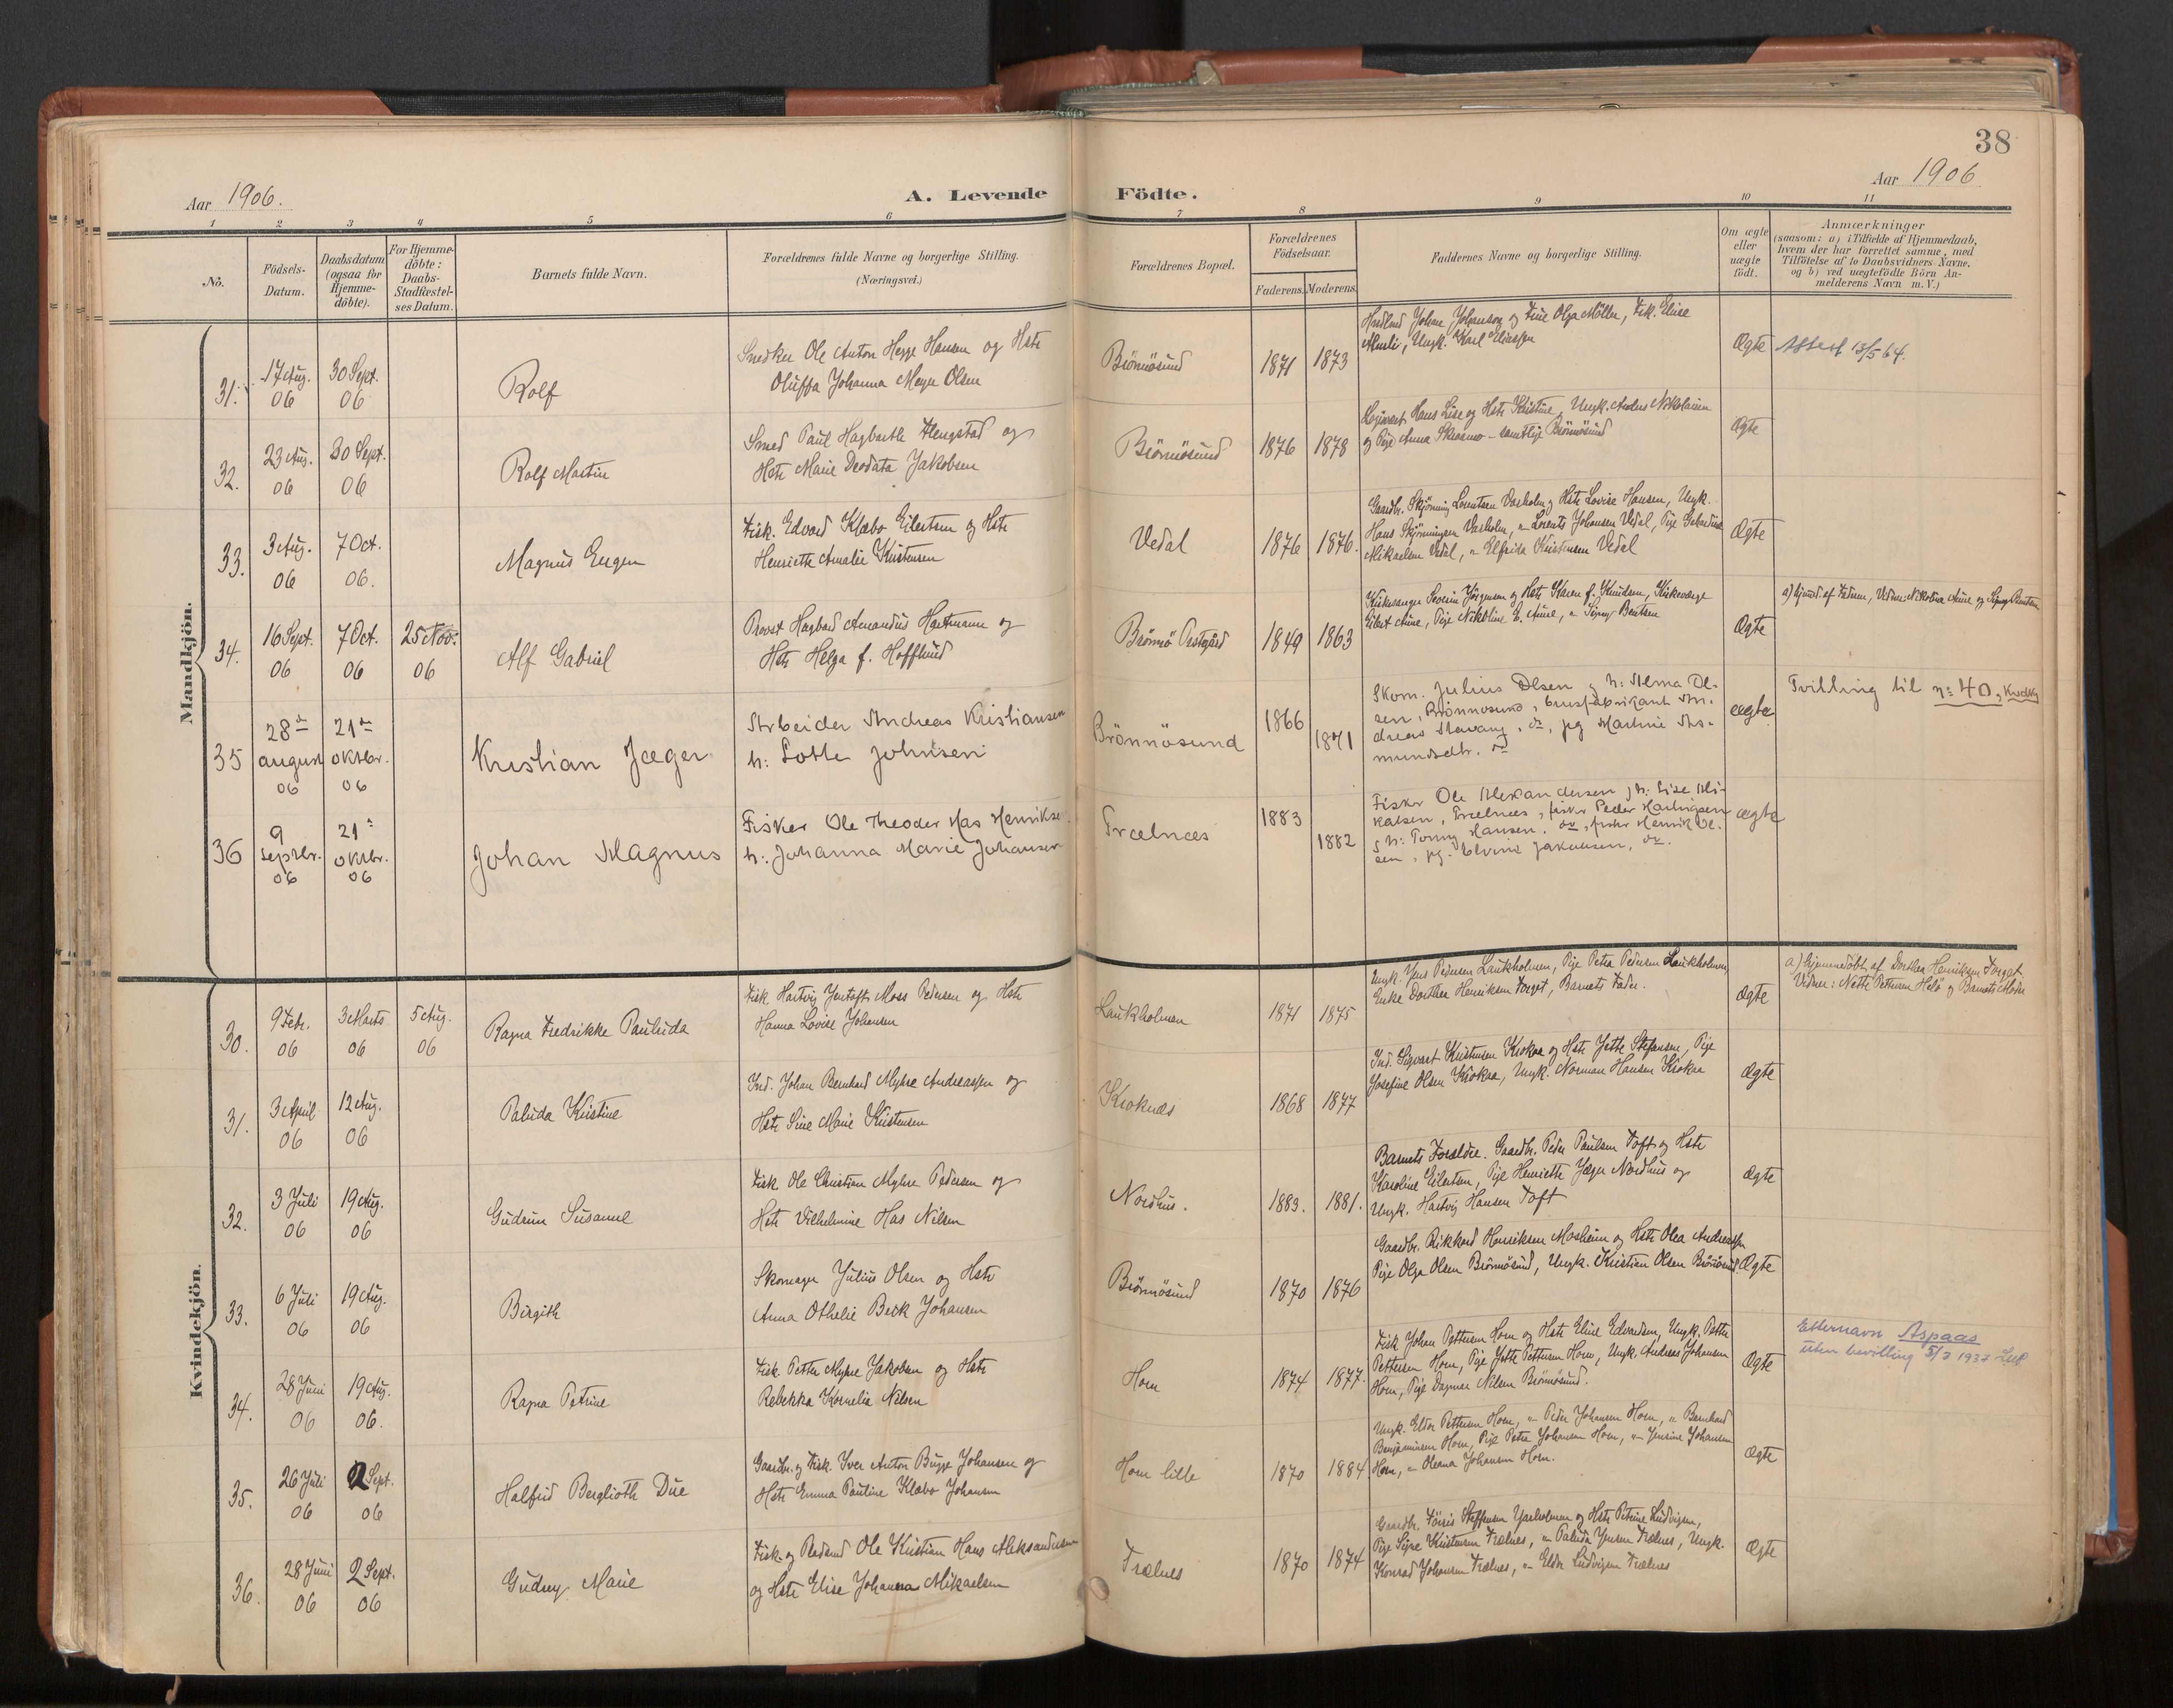 38
Aar 1906.
A. Levende
Födte.
Aar 1906
1 2 3 4 5 6 7 8 9 10 11
No.
Födsels-
Datum.
Daabsdatum
(ogsaa for
Hjemme-
döbte).
For Hjemme-
döbte:
Daabs-
Stadfæstel-
ses Datum.
Barnets fulde Navn.
Forældrenes fulde Navne og borgerlige Stilling.
(Næringsvei.)
Forældrenes Bopæl.
Forældrenes
Födselsaar.
Faderens. Moderens.
Faddernes Navne og borgerlige Stilling.
Om ægte
eller
uægte
födt.
Anmærkninger
(saasom: a) i Tilfælde af Hjemmedaab,
hvem der har forrettet samme, med
Tilföielse af to Daabsvidners Navne.
og b) ved uægtefödte Börn An-
melderens Navn m. V.)
Mandkjön.
31.
17 Aug.
06
30 Sept.
06
Rolf
Snedker Ole Anton Hegge Hansen og Hstr
Oluffa Johanna Meyer Olsen
Brönnösund
1871 1873
Johan Johansen og Frue Olga Möller, Frk. Elise
Ungk. Karl Eliassen
Ægte
Attest 13/5 64.
32.
23 Aug.
06
30 Sept.
06
Rolf Martin
Smed Paul Hagbarth Hengstad og
Hstr Marie Deodata Jakobsen
Brönnösund
1876 1878
Hans Lise og Hstr Kristine, Ungk. Anders Nikolaisen
og Pige Anna Skrosmo - samtlige Brönnösund
Ægte
33.
3 Aug.
06
7 Oct.
06.
Magnus Eugen
Fisk. Edvard Klæbo Eilertsen og Hstr
Henriette Amalie Kristensen
Vedal
1876 1876.
Gaardbr. Skjönning Lorentsen og Hstr Lovise Hansen, Ungk.
Hans Skjönningsen, " Lorents Johansen Vedal, Pige
Mikaelsen Vedal, " Elfrida Kristensen Vedal
Ægte
34.
16 Sept.
06
7 Oct.
06
25 Nov.
06
Alf Gabriel
Provst Hagbard Amandus Hartmann og
Hstr Helga f. Hofflund
Brönnö Prestgård
1849 1863
Kirkesanger Severin Jörgensen og Hstr Karen f. Knudsen, Kirkeværge
Eilert Aune, Pige Nikoline E. Aune, " Signy Bentsen
Ægte
a) Hjemd. af Faderen, Vidner: Nikoline Aune og Signy Bentsen
35
28de
august
06
21de
oktbr.
06
Kristian Jæger
Arbeider Andreas Kristiansen
h: Lotte Johnsen
Brönnösund
1866
1871
Skom. Julius Olsen, h: Alma Ol-
sen, Brönnösund, brusfabrikant An-
dreas Stavang, do, pg Martine As-
mundsdtr. do
ægte
Tvilling til n: 40, Kvdkj
36
9
septbr.
06
21de
oktbr.
06
Johan Magnus
Fisker Ole Theodor Has Henriksen
h: Johanna Marie Johansen
Trælnæs
1883
1882
Fisker Ole Aleksandersen, h: Lise Mi-
kalsen, Trælnes, fisker Peder Hartvigsen
, h: Tonny Hansen, do, fisker Henrik Ol-
sen, pg. Elvine Jakobsen, do.
ægte
Kvindekjön.
30.
9 Febr.
06
3 Marts
06
5 Aug.
06
Ragna Fredrikke Paulida
Fisk. Hartvig Jentoft Moss Pedersen og Hstr
Hanna Lovise Johansen
Laukholmen
1871 1875
Ungk. Jens Pedersen Laukholmen, Pige Petra Pedersen Laukholmen,
Enke Dorthea Henriksen Torget, Barnets Fader.
Ægte
a) Hjemmedöbt af Dorthea Henriksen Torget.
Vidner: Nette Pettersen Helö og Barnets Moder
31.
3 April
06
12 Aug.
06
Palida Kristine
Ind. Johan Bernhard Myhre Andreassen og
Hstr Sine Marie Kristensen
Kroknæs
1868 1877
Ind. Sigvart Kristensen Krokaa og Hstr Jette Stefansen, Pige
Josefine Olsen Krokaa, Ungk. Norman Hansen Krokaa
Ægte
32.
3 Juli
06
19 Aug.
06
Gudrun Susanne
Fisk. Ole Christian Myhre Pedersen og
Hstr Vilhelmine Has Nilsen
Nordhus.
1883. 1881.
Barnets Forældre. Gaardbr. Peder Paulsen Toft og Hstr
Karoline Eilertsen, Pige Henriette Jæger Nordhus og
Ungk. Hartvig Hansen Toft
Ægte
33.
6 Juli
06
19 Aug.
06
Birgith
Skomager Julius Olsen og Hstr
Anna Othelie Beck Johansen
Brönnösund
1870 1876
Gaardbr. Rikkard Henriksen Mosheim og Hstr Olea Andreassen
Pige Olga Olsen Brönnösund, Ungk. Kristian Olsen Brönösund.
Ægte
34.
28 Juni
06
19 Aug.
06.
Ragna Petrine
Fisk. Petter Myhre Jakobsen og Hstr
Rebekka Kornelia Nilsen
Horn
1874 1877.
Fisk Johan Pettersen Horn og Hstr Eline Edvardsen, Ungk. Petter
Pettersen Horn, Pige Jette Pettersen Horn, Ungk. Anders Johansen
Horn, Pige Dagmar Nilsen Brönnösund.
Ægte
Etternavn Aspaas
uten bevilling 5/3 1937
35.
26 Juli
06
2 Sept.
06
Halfrid Berglioth Due
Gaardbr. og Fisk. Iver Anton Bugge Johansen og
Hstr Emma Pauline Klæbo Johansen
Horn lille
1870 1884
Ungk. Eldor Pettersen Horn, " Peder Johansen Horn, " Bernhard
Benjaminsen Horn, Pige Petra Johansen Horn, " Jensine Johansen
Horn, " Oleana Johansen Horn.
Ægte
36.
28 Juni
06
2 Sept.
06
Gudny Marie
Fisk. og Rodmd Ole Kristian Hans Aleksandersen
og Hstr Elise Johanna Mikaelsen
Trælnes
1870 1874
Gaardbr. Steffensen og Hstr Petrine Ludvigsen,
Pige Signe Kristensen Trælnes, " Palida Jensen Trælnes, Ungk.
Konrad Johansen Trælnes, " Eldor Ludvigsen Trælnes
Ægte